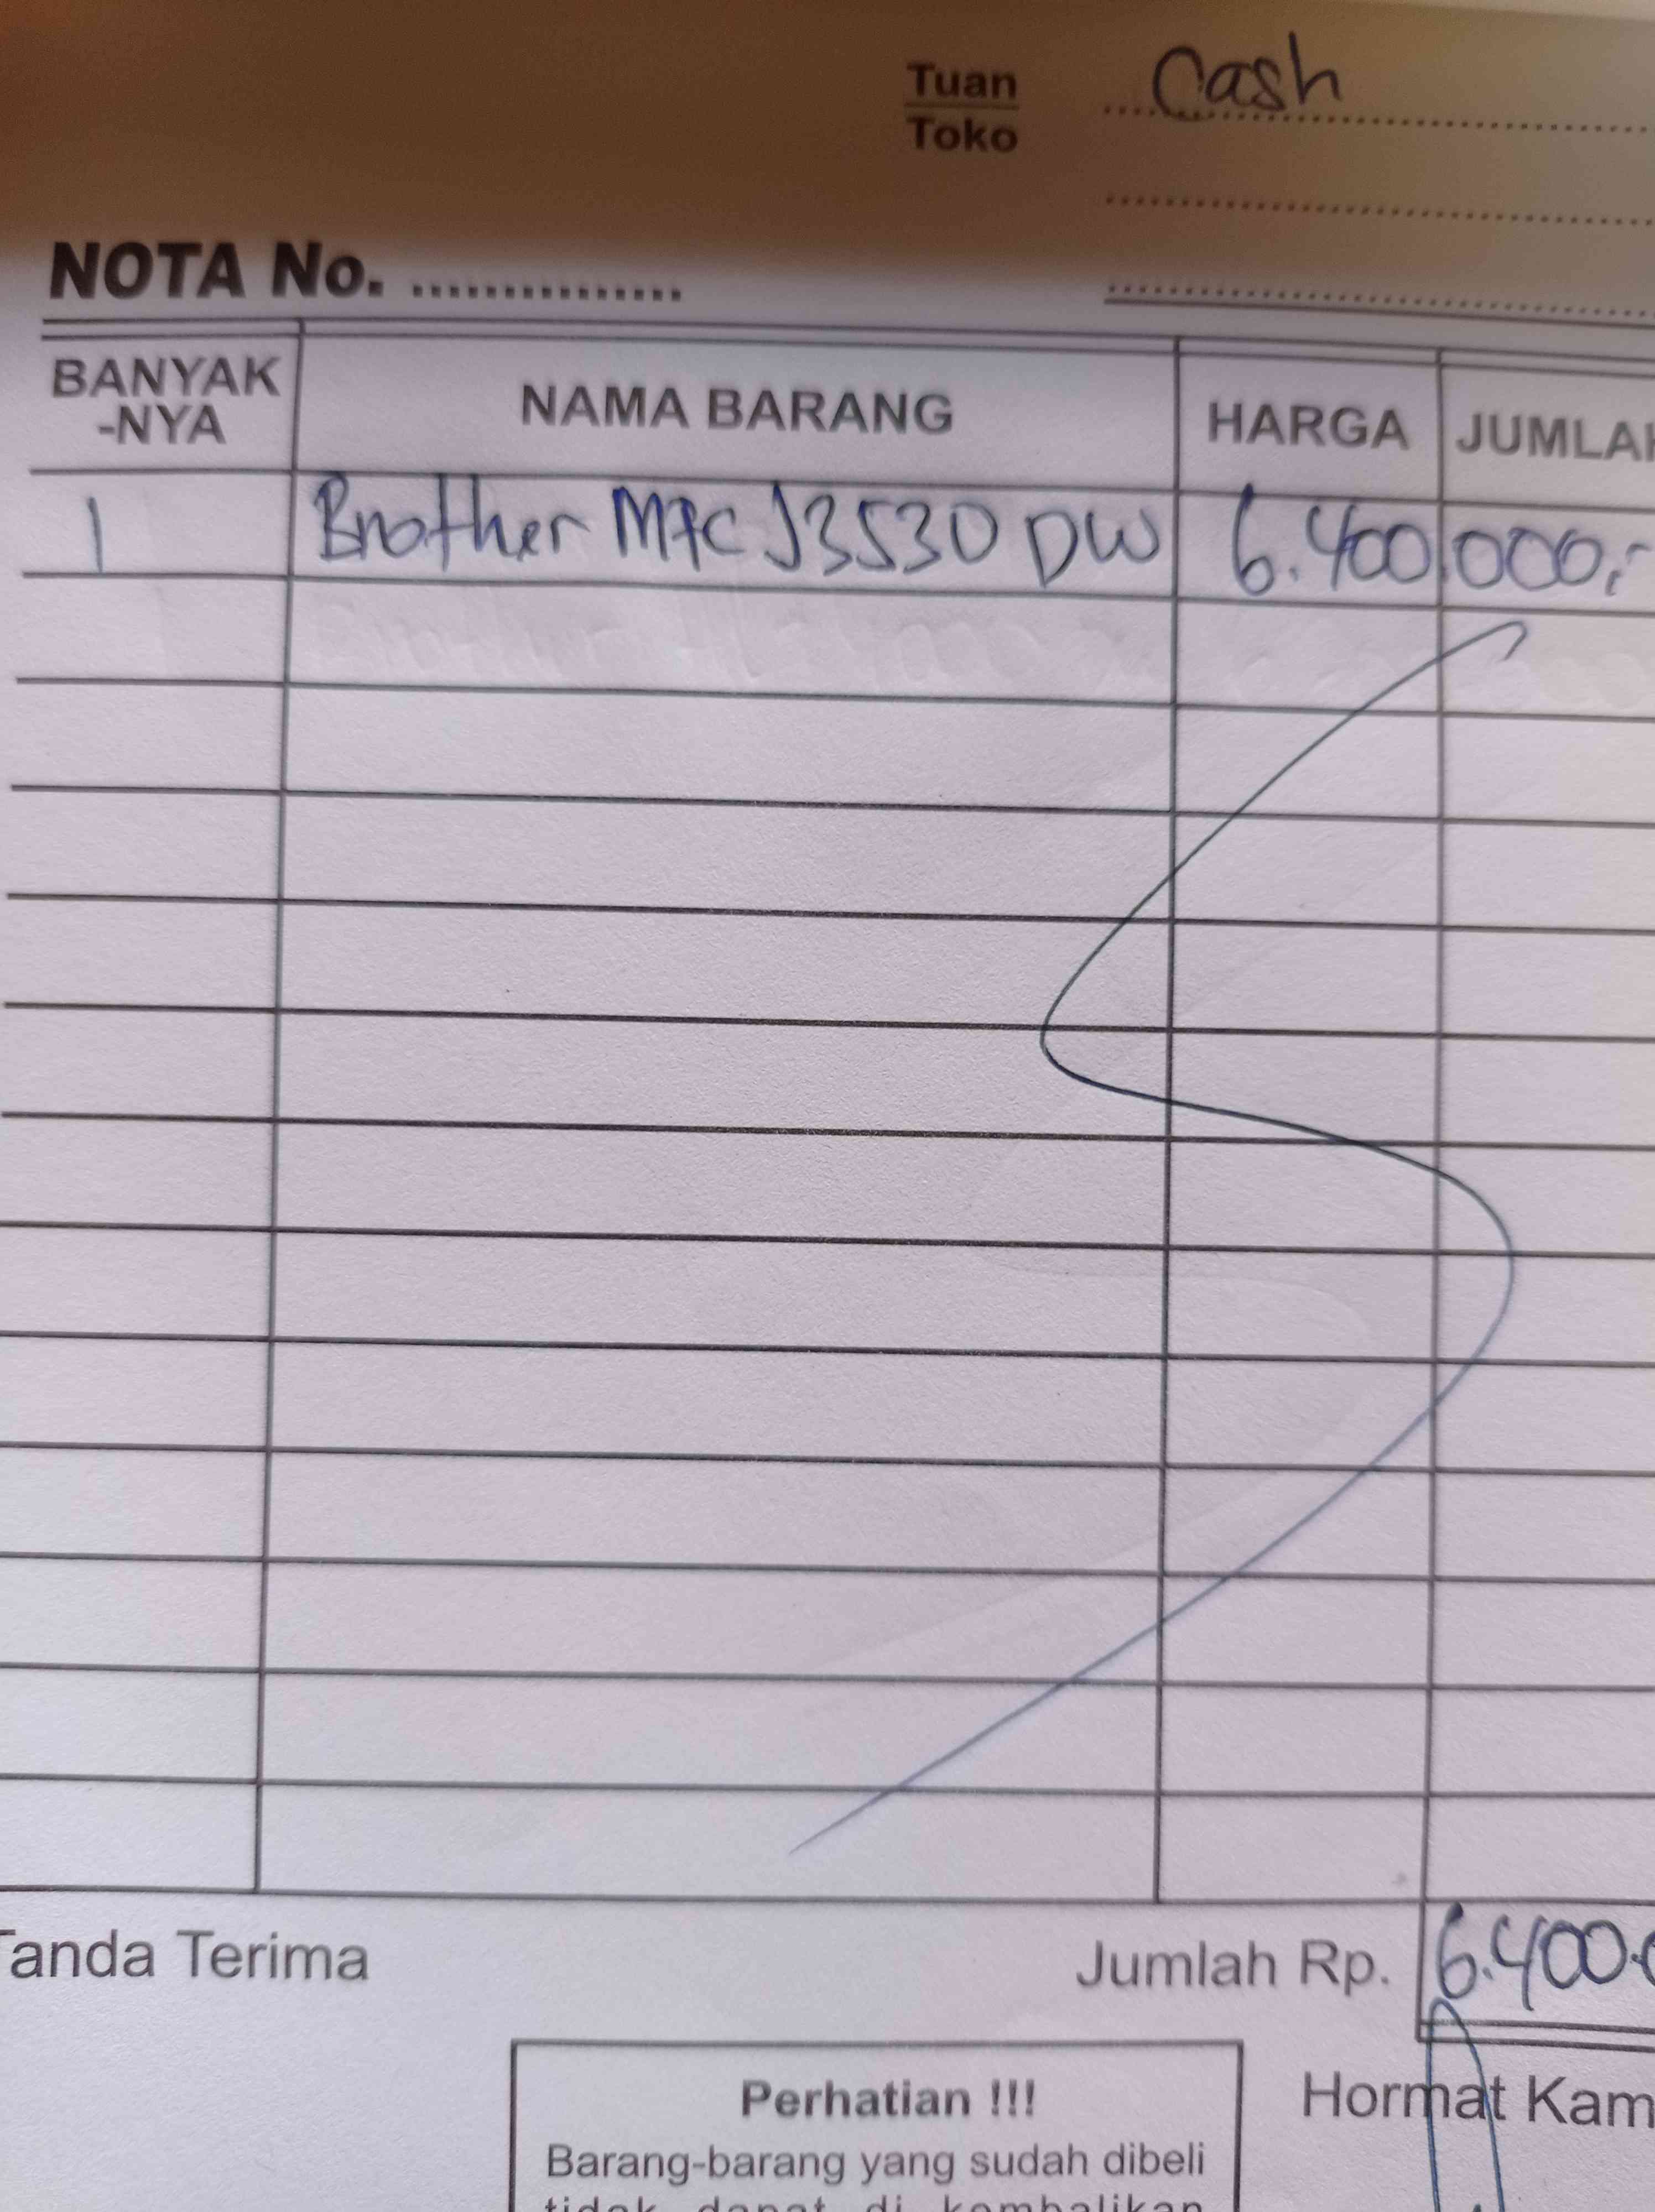 Tuan Cash
Toko
NOTA No. ...............
BANYAK -NYA NAMA BARANG HARGA JUMLAH
1 Brother MFC J3530 DW 6.400.000,-
Tanda Terima Jumlah Rp. 6.400.
Hormat Kam
Perhatian !!!
Barang-barang yang sudah dibeli
tidak dapat di kembalikan